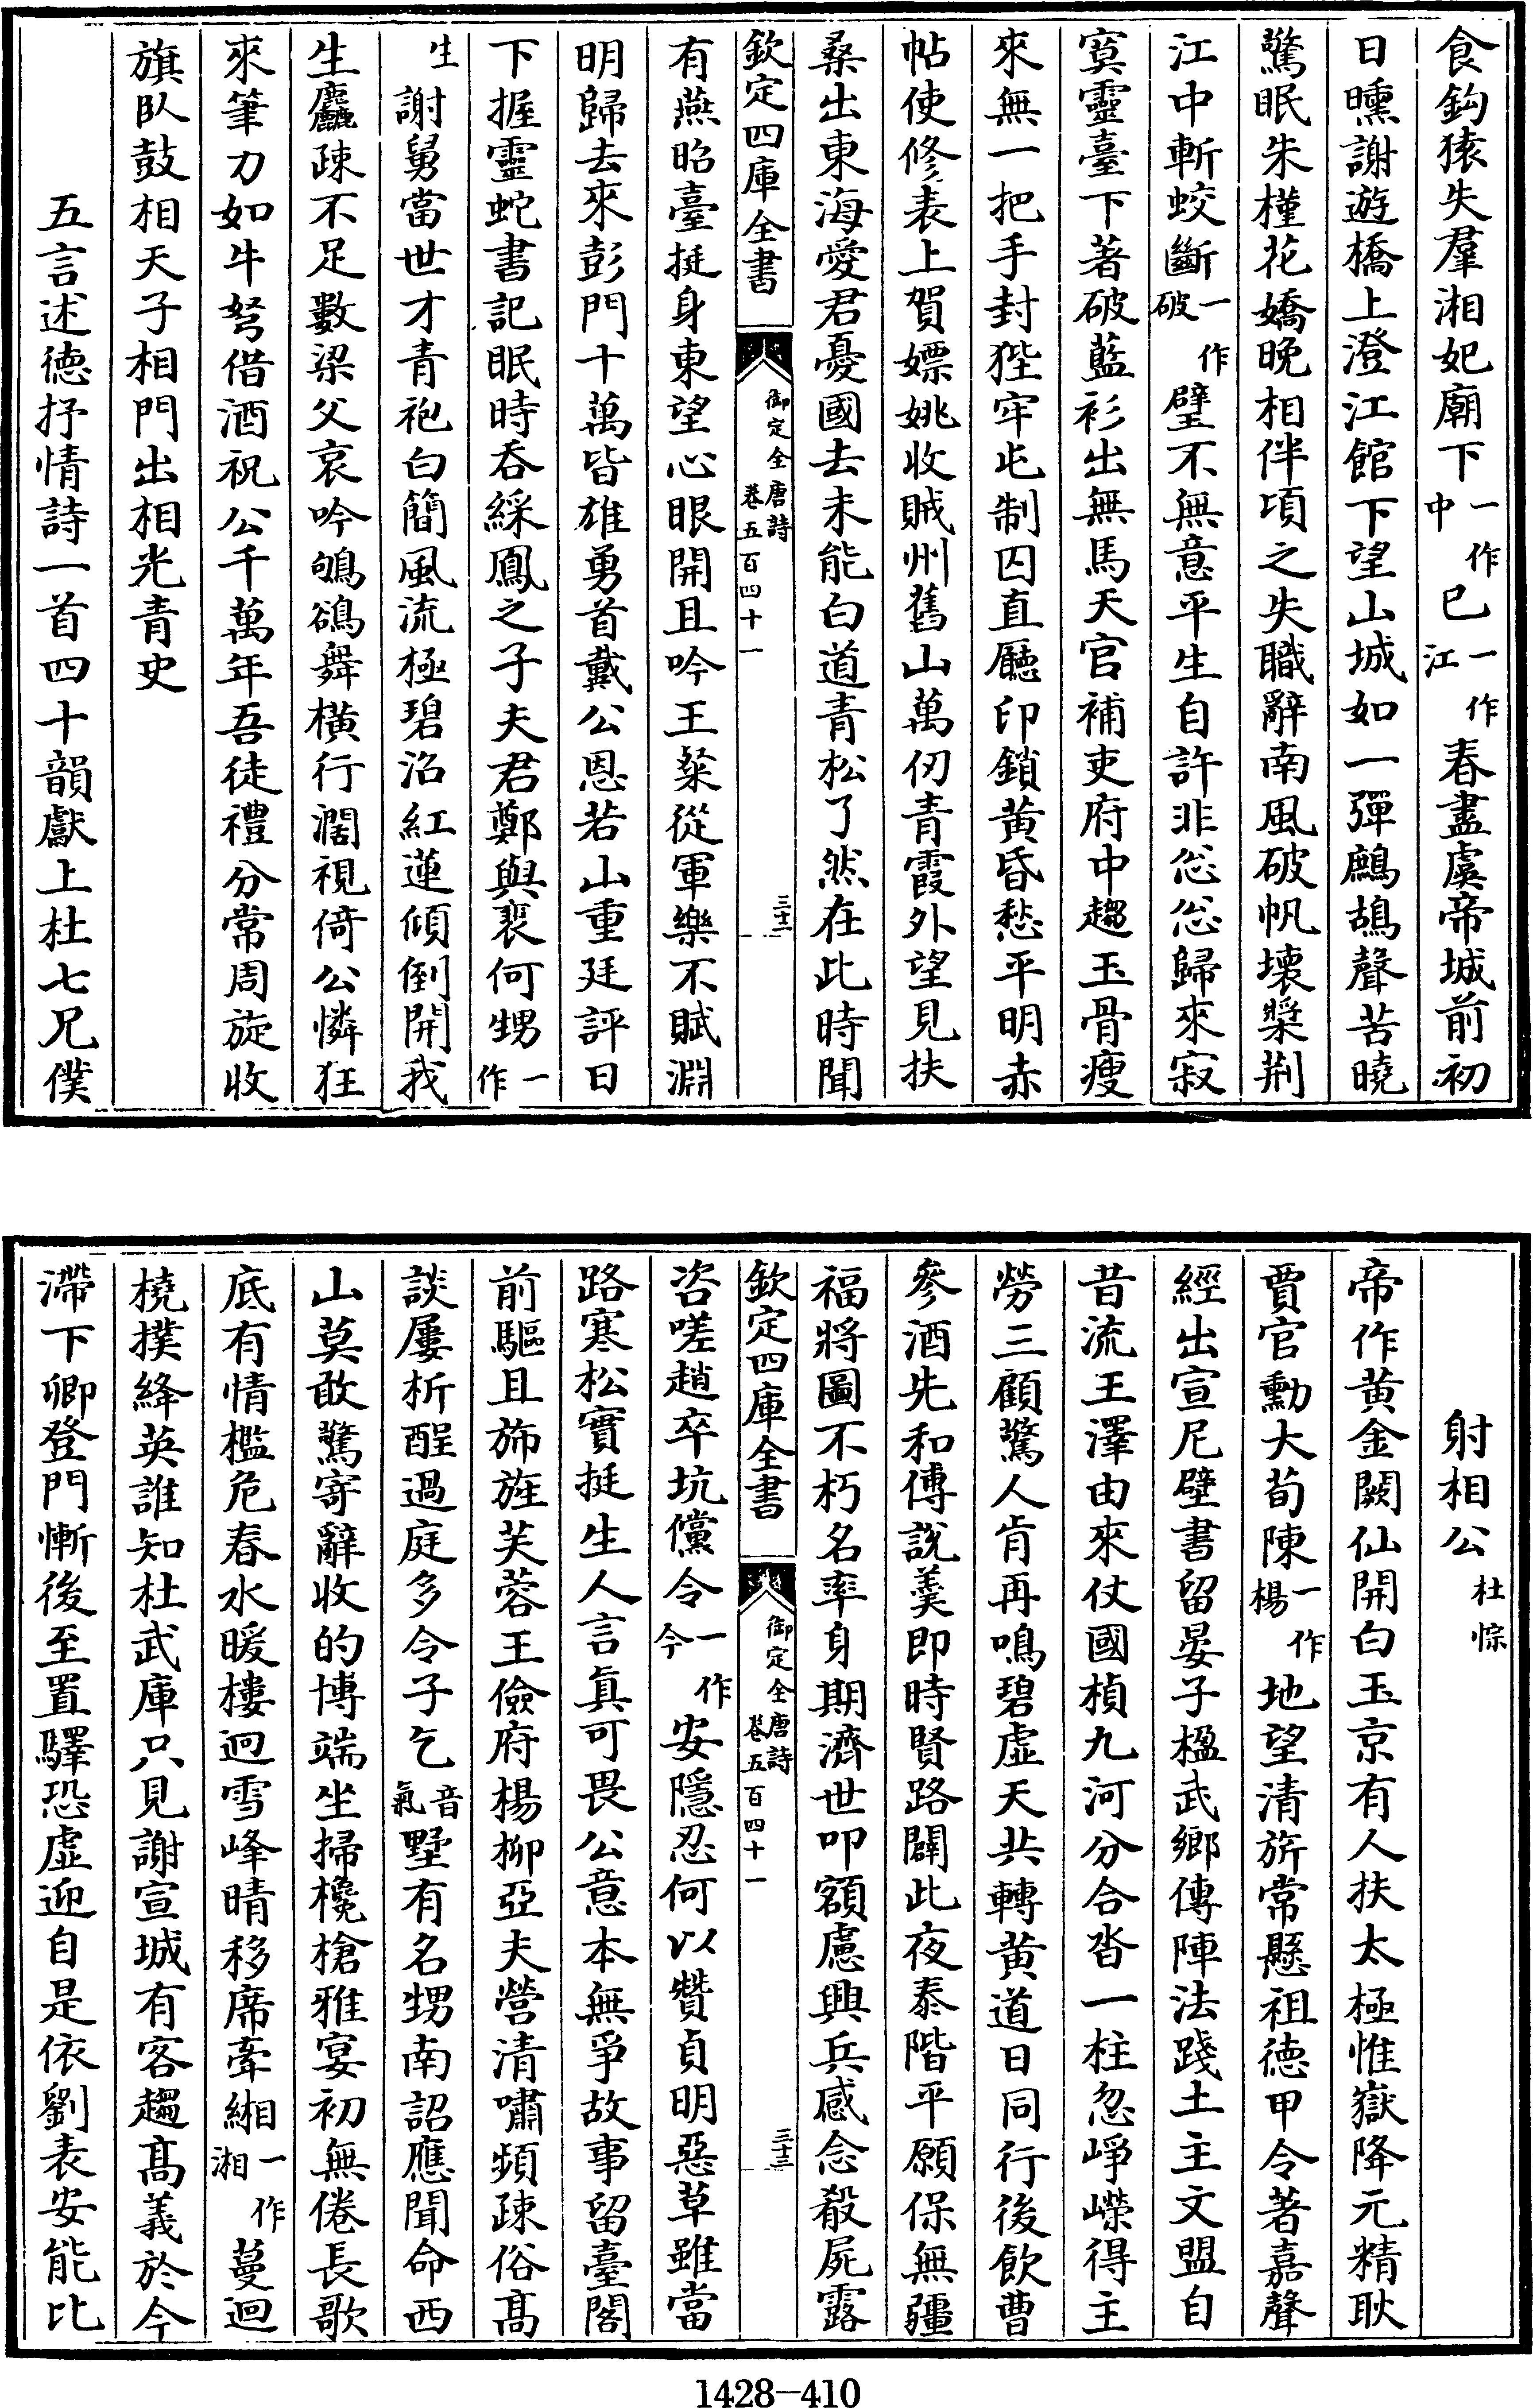 食鈎猿失羣湘妃廟下一作中已一作江春盡虞帝城前初
日曛謝遊橋上澄江館下望山城如一彈鷓鴣聲苦曉
驚眠朱槿花嬌晚相伴頃之失職辭南風破帆壞槳荆
江中斬蛟斷一作破璧不無意平生自許非怱怱歸來寂
寞靈臺下著破藍衫出無馬天官補吏府中趨玉骨瘦
來無一把手封狴牢屯制囚直廳印鎖黃昏愁平明赤
帖使修表上賀嫖姚收賊州舊山萬仞青霞外望見扶
桑出東海愛君憂國去未能白道青松了然在此時聞
欽定四庫全書 御定全唐詩 卷五百四十一 三十二
有燕昭臺挺身東望心眼開且吟王粲從軍樂不賦淵
明歸去來彭門十萬皆雄勇首戴公恩若山重廷評日
下握靈蛇書記眠時吞綵鳳之子夫君鄭與裴何甥一作
生謝舅當世才青袍白簡風流極碧沼紅蓮傾倒開我
生麤疎不足數梁父哀吟鴝鵒舞橫行濶視倚公憐狂
來筆力如牛弩借酒祝公千萬年吾徒禮分常周旋收
旗臥鼓相天子相門出相光青史
五言述德抒情詩一首四十韻獻上杜七兄僕
射相公杜悰
帝作黃金闕仙開白玉京有人扶太極惟嶽降元精耿
賈官勳大荀陳一作楊地望清旂常懸祖德甲令著嘉聲
經出宣尼壁書留晏子楹武鄉傳陣法踐土主文盟自
昔流王澤由來仗國楨九河分合沓一柱忽崢嶸得主
勞三顧驚人肯再鳴碧虛天共轉黃道日同行後飲曹
參酒先和傅說羹即時賢路闢此夜泰階平願保無疆
福將圖不朽名率身期濟世叩額慮興兵感念殽屍露
欽定四庫全書 御定全唐詩 卷五百四十一 三十三
咨嗟趙卒坑儻令一作今安隱忍何以贊貞明惡草雖當
路寒松實挺生人言眞可畏公意本無爭故事留臺閣
前驅且斾旌芙蓉王儉府楊柳亞夫營清嘯頻疎俗高
談屢析酲過庭多令子乞音氣墅有名甥南詔應聞命西
山莫敢驚寄辭收的博端坐掃欃槍雅宴初無倦長歌
底有情檻危春水暖樓迥雪峰晴移席牽緗一作湘蔓迴
橈撲絳英誰知杜武庫只見謝宣城有客趨高義於今
滯下卿登門慚後至置驛恐虛迎自是依劉表安能比
1428-410